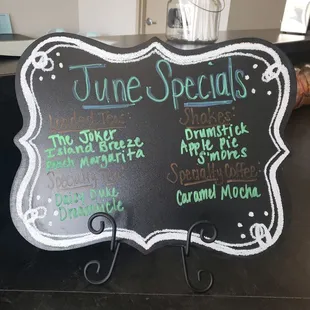 June Specials
Loaded Teas:
The Joker
Island Breeze
Beach Margarita
Specialty Teas:
Daisy Duke
Dreamsicle
Shakes:
Drumstick
Apple Pie
S'mores
Specialty Coffee:
Caramel Mocha